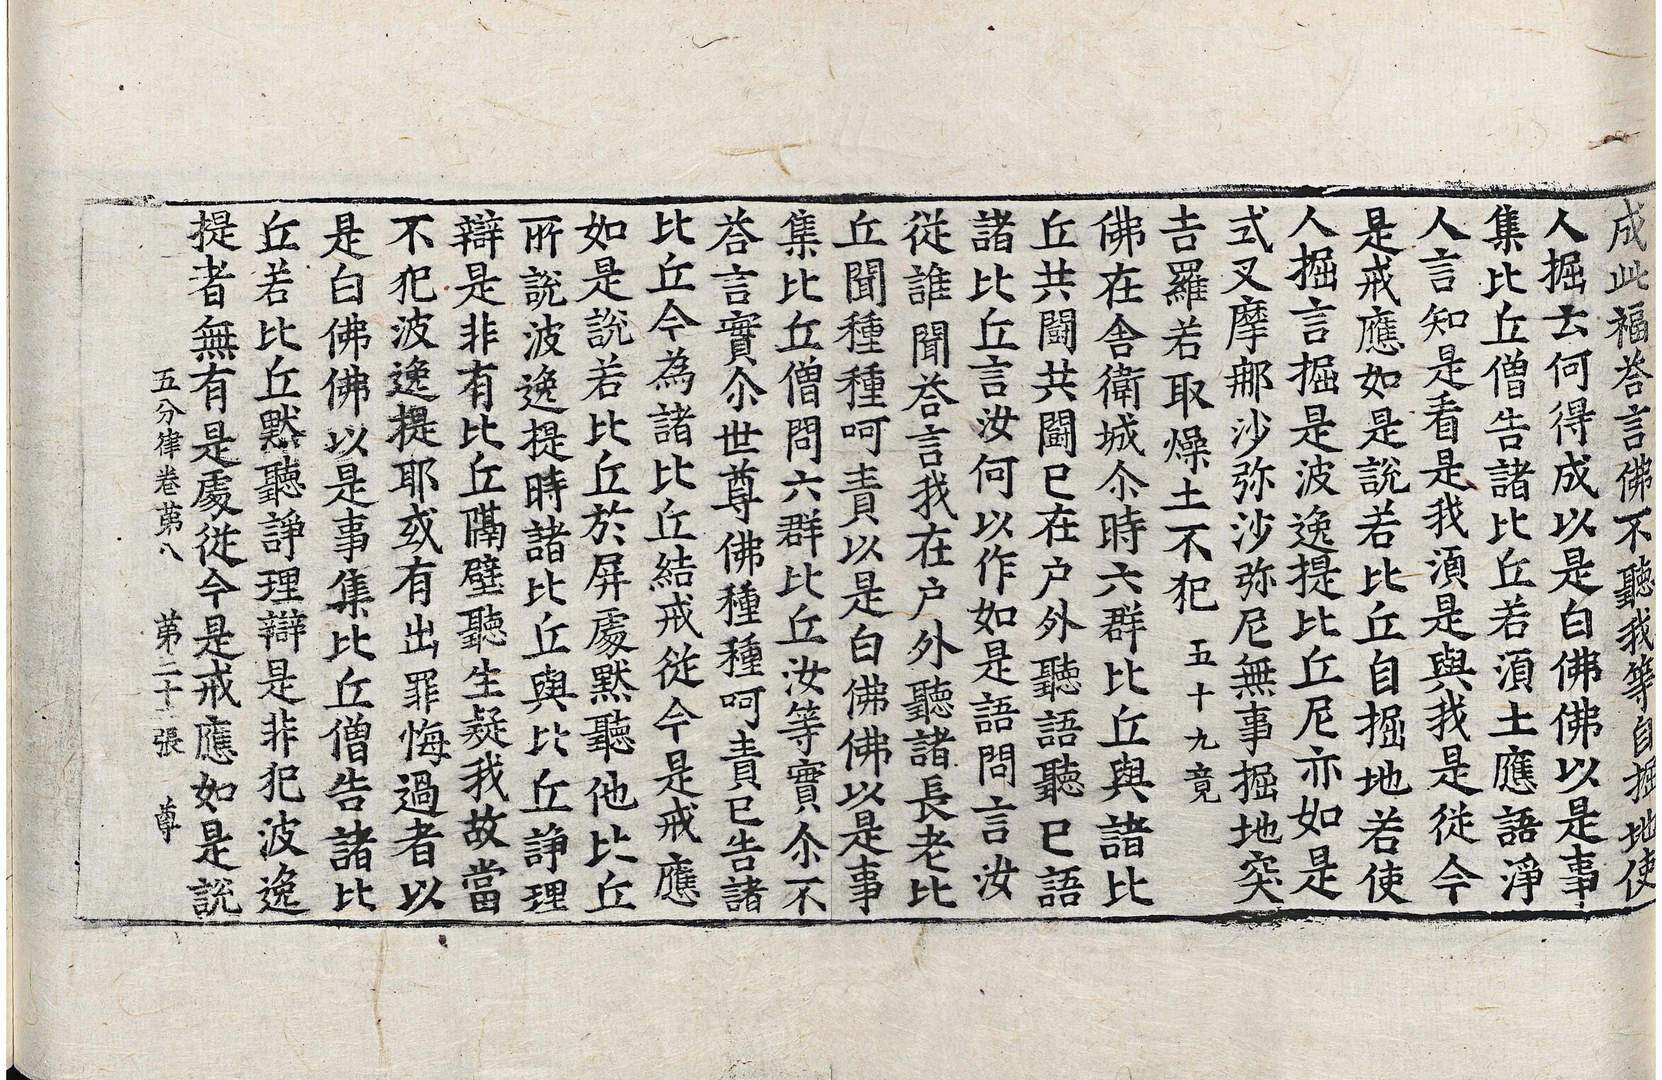 成此福荅言佛不聽我等自掘地使
人掘云何得成以是白佛佛以是事
集比丘僧告諸比丘若湏土應語淨
人言知是看是我湏是與我是從今
是戒應如是說若比丘自掘地若使
人掘言掘是波逸提比丘尼亦如是
式叉摩那沙弥沙弥尼無事掘地突
吉羅若取燥土不犯 五十九竟
佛在舍衛城尒時六群比丘與諸比
丘共鬪共鬪已在户外聽語聽已語
諸比丘言汝何以作如是語問言汝
從誰聞荅言我在户外聽諸長老比
丘聞種種呵責以是白佛佛以是事
集比丘僧問六群比丘汝等實尒不
荅言實尒世尊佛種種呵責已告諸
比丘今為諸比丘結戒從今是戒應
如是說若比丘於屏處默聽他比丘
所說波逸提時諸比丘與比丘諍理
辯是非有比丘隔壁聽生疑我故當
不犯波逸提耶或有出罪悔過者以
是白佛佛以是事集比丘僧告諸比
丘若比丘默聽諍理辯是非犯波逸
提者無有是處從今是戒應如是說
五分律卷第八 第二十二張 尊